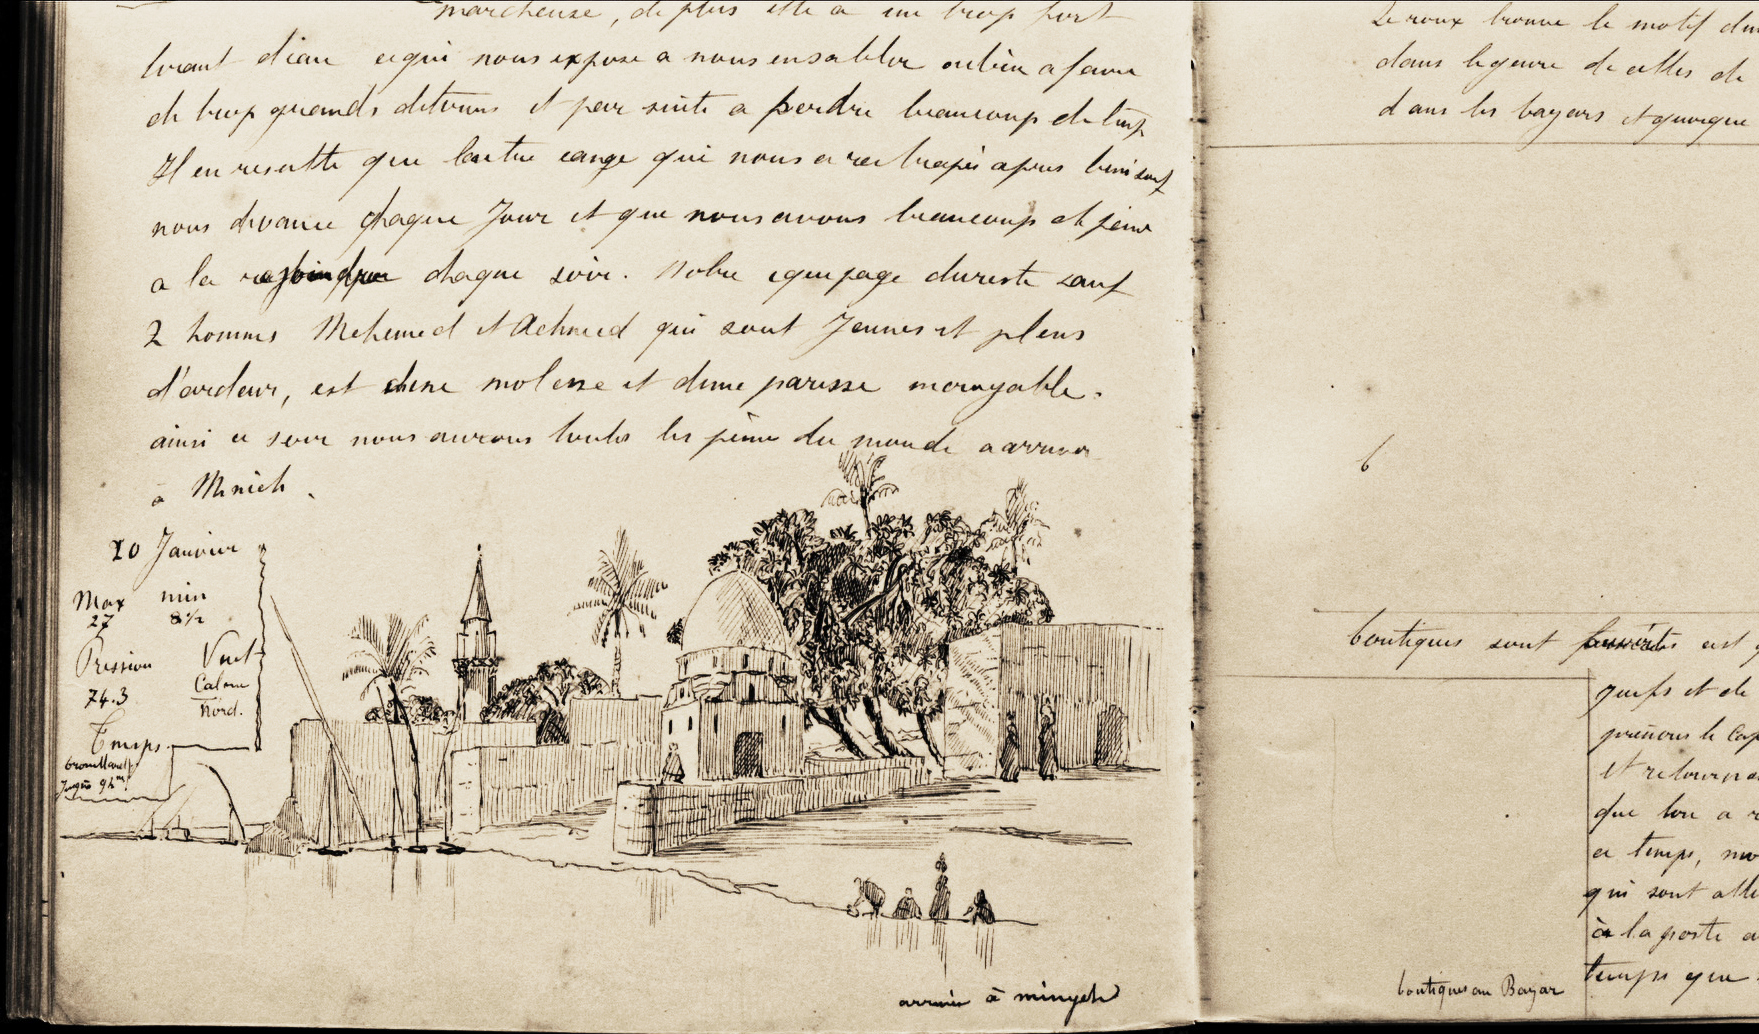 marcheuse, de plus elle a un trop fort
tirant d'eau ce qui nous expose a nous ensabler ou bien a faire
de trop grands detours et par suite a perdre beaucoup de temps
Il en resulte que lautre cange qui nous a rattrapés apres beni souef
nous devance chaque Jour et que nous avons beaucoup de peine
a la rejoindre chaque soir. Notre equipage du reste sauf
2 hommes Mehemed et Achmed qui sont Jeunes et pleins
d'ardeur, est dune molesse et dune paresse incroyable.
ainsi ce soir nous aurons toutes les peines du monde a arriver
à Minieh.
10 Janvier
Max min
27 8 1/2
Pression Vent
74.3 Calme
Nord.
Temps
brouillard
Jusqu'à 9h
arrivée à minyeh
Leroux trouve le motif
dans le genre de celles de
dans les bazars et quoique
b
boutiques sont est
juifs et de
prenons le
et
que lon a
ce temps,
qui sont
à la poste
temps que
boutiques au Bazar